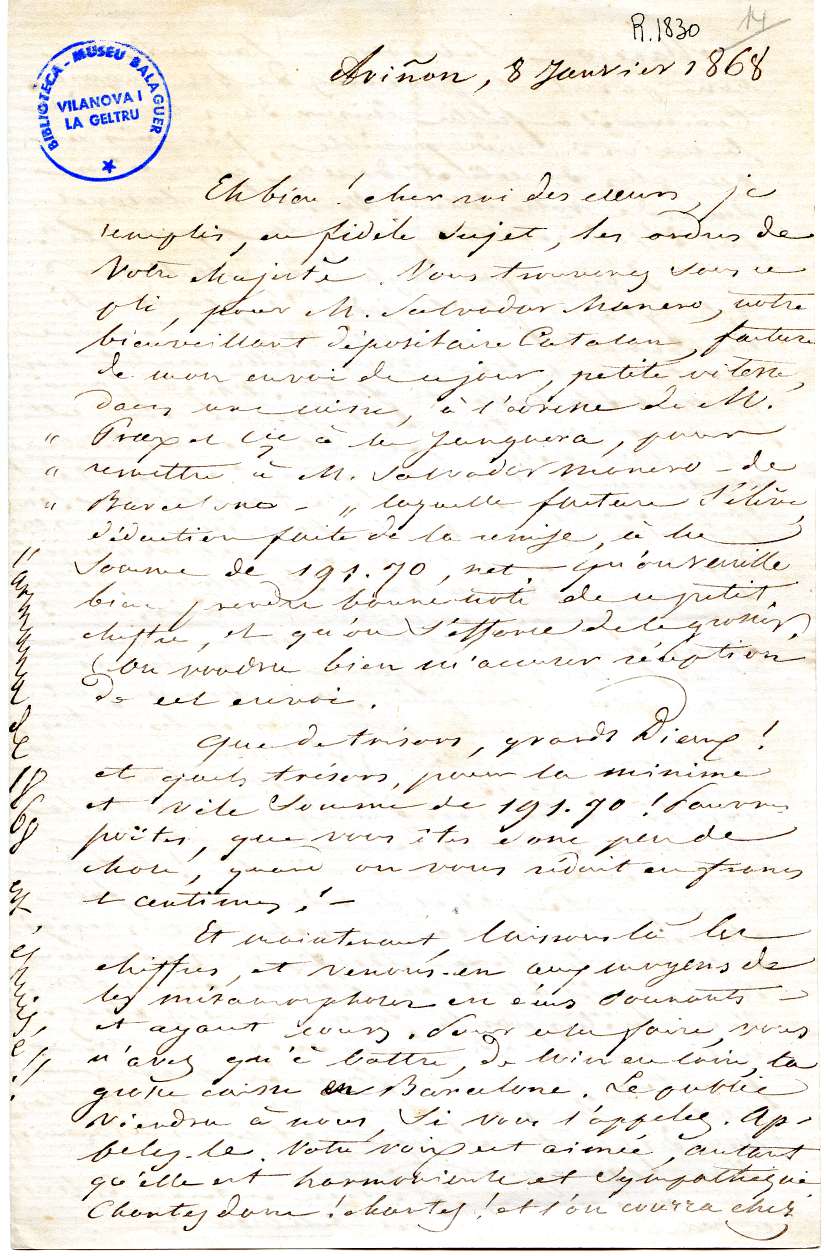 R.1830
14
BIBLIOTECA - MUSEU BALAGUER
VILANOVA I
LA GELTRU
Aviñon, 8 Janvier 1868
Eh bien ! cher roi des cœurs, je
remplis, en fidèle sujet, les ordres de
Votre Majesté. Vous trouverez sous ce
pli, pour M. Salvador Manero, notre
bienveillant dépositaire Catalan, facture
de mon envoi de ce jour, petite vitesse,
dans une caisse, à l'adresse de M.
" Prax et Cie à la Junquera, pour
" remettre à M. Salvador Manero - de
" Barcelone - " laquelle facture s'élève,
déduction faite de la remise, à la
somme de 191.70, net. Qu'on veuille
bien prendre bonne note de ce petit
chiffre, et qu'on s'efforce de le grossir.
On voudra bien m'accuser réception
de cet envoi.
Que de trésors, grands Dieux !
et quels trésors, pour la minime
et vile somme de 191.70 ! Pauvres
poètes, que vous êtes donc peu de
chose, quand on vous réduit en francs
et centimes ! -
Et maintenant, laissons là les
chiffres, et venons-en aux moyens de
les métamorphoser en écus sonnants -
et ayant cours. Pour cela faire, vous
n'avez qu'à battre, de loin en loin, la
grosse caisse en Barcelone. Le public
viendra à nous, si vous l'appelez. Ap-
pelez-le. Votre voix est aimée, autant
qu'elle est harmonieuse et sympathique
Chantez donc ! chantez ! et l'on courra chez
"armana de 1868 épuisé !!